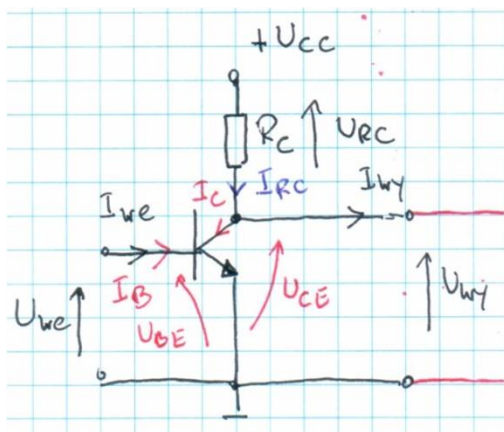 +UCC
RC URC
IC IRC IWY
Iwe
IB
UBE UCE
Uwe UWY